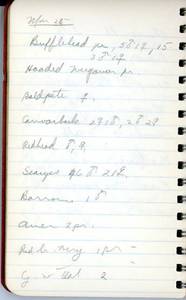 Mar 25
Bufflehead pr, 5♂1♀, 15
3♂1♀
Hooded Merganser pr
Baldpate ♀.
Canvasback 2♀1♂, 2♂2♀
Redhead ♂, 9,
Scaups 46♂ 21♀.
Barrows 1♂
Amer 2 pr.
Red br Merg 1 pr -
G. w Teal 2